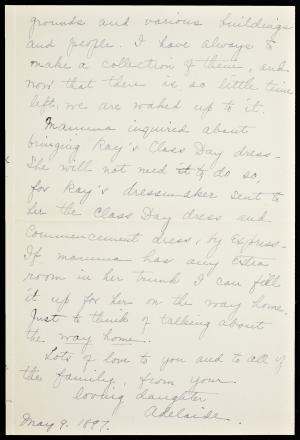 grounds and various buildings
and people. I have always to
make a collection of them, and
now that there is so little time
left, we are waked up to it.
Mamma inquired about
bringing Kay's Class Day dress.
She will not need it to do so,
for Kay's dressmaker sent to
her the Class Day dress and
Commencement dress, by Express.
If mamma has any extra
room in her trunk I can fill
it up for her on the way home.
Just to think of talking about
the way home.
Lots of love to you and to all of
the family, from your
loving daughter
Adelaide.
May 9. 1897.